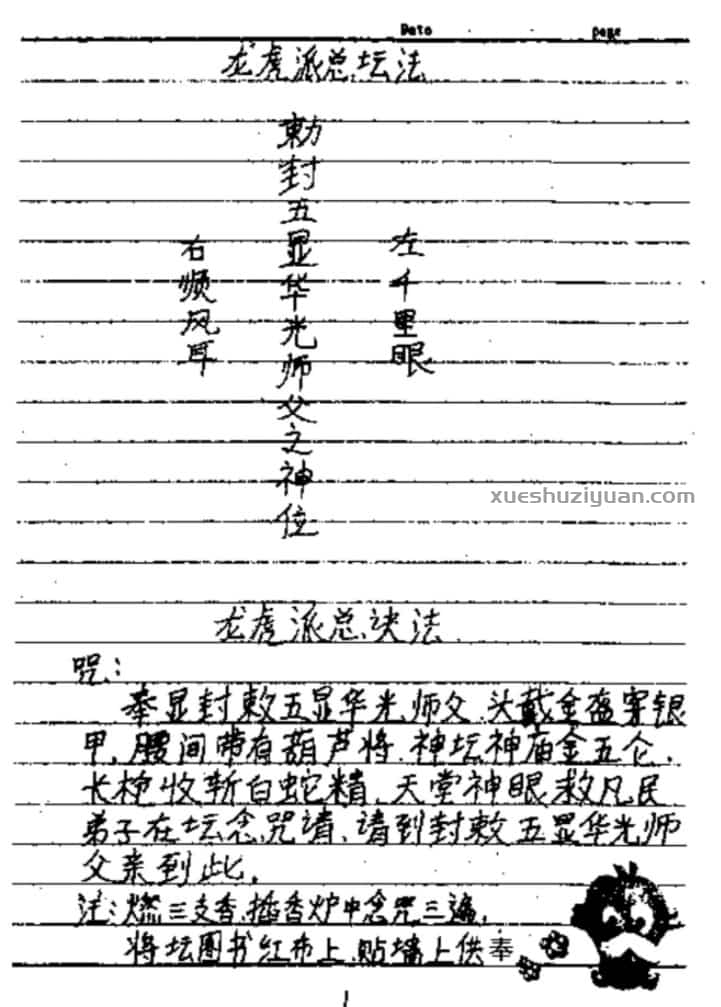 Date page
龙虎派总坛法
勅封五显华光师父之神位
左千里眼
右顺风耳
xueshuziyuan.com
龙虎派总诀法
咒:
奉显封敕五显华光师父.头戴金盔穿银
甲,腰间带有葫芦将.神坛神庙金五仑,
长枪收斩白蛇精,天堂神眼救凡民
弟子在坛念咒请,请到封敕五显华光师
父亲到此.
注:燃三支香,插香炉中念咒三遍,
将坛图书红布上,贴墙上供奉
1